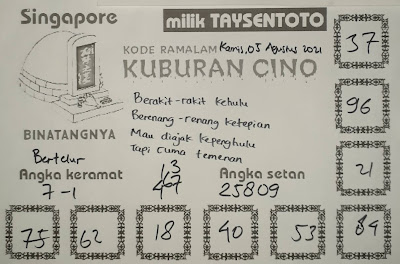 Singapore
milik TAYSENTOTO
KODE RAMALAM Kamis, 05 Agustus 2021
KUBURAN CINO
Berakit-rakit kehulu
Berenang-renang ketepian
Mau diajak kepenghulu
Tapi cuma temenan
BINATANGNYA
Bertelur
Angka keramat
7-1
13
Angka setan
25809
37
96
21
75 62 18 40 53 84